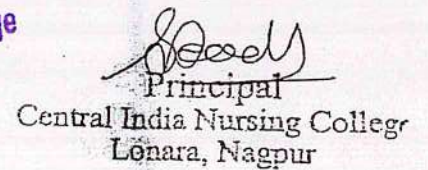 Principal
Central India Nursing College
Lonara, Nagpur